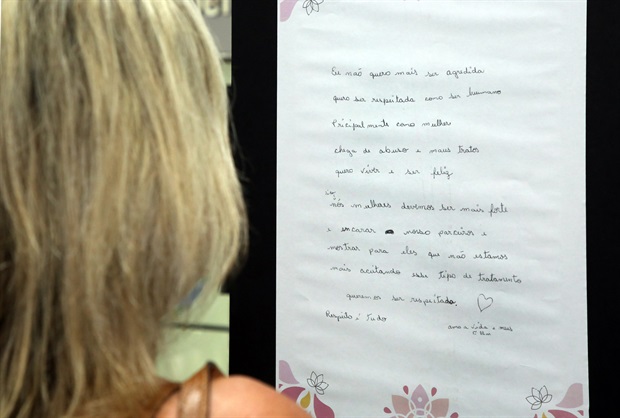 Eu não quero mais ser agredida
quero ser respeitada como ser humano
Pricipalmente como mulher
chega de abuso e maus tratos
quero viver e ser feliz
nós mulheres devemos ser mais forte
e encarar nosso parceiros e
mostrar para eles que não estamos
mais aceitando esse tipo de tratamento
queremos ser respeitada.
Respeito é Tudo
amo a vida e meus